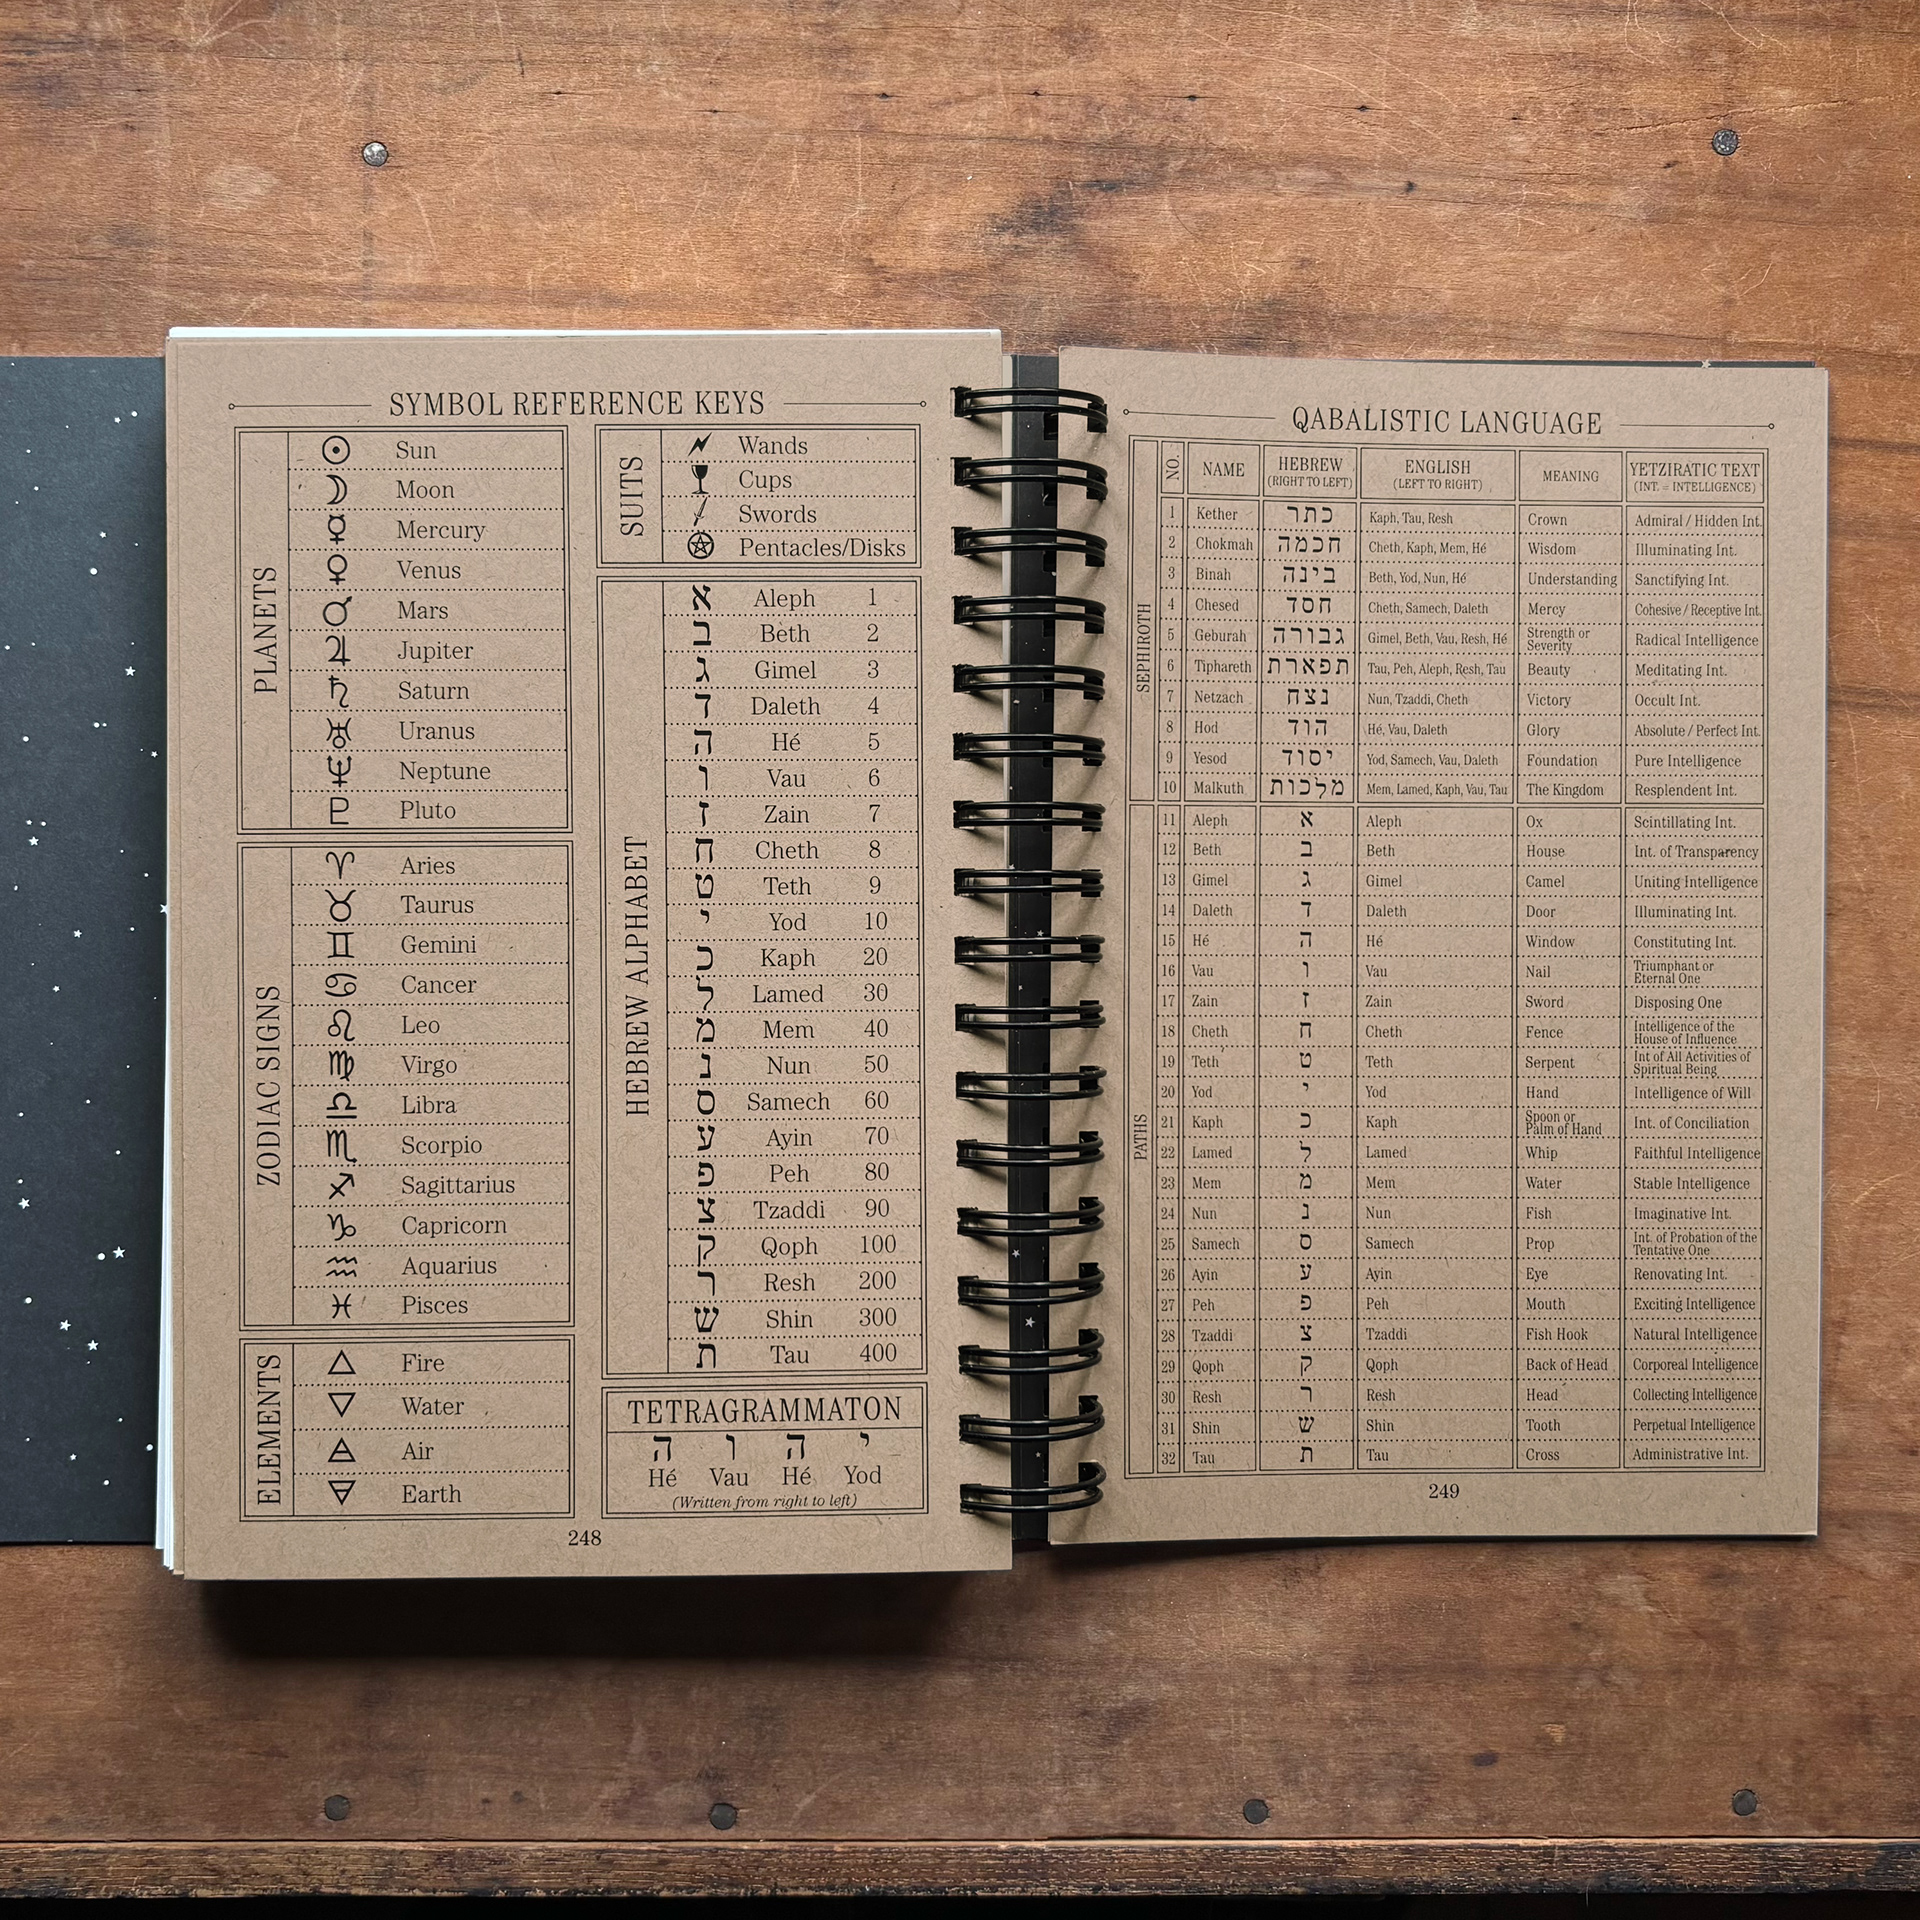 SYMBOL REFERENCE KEYS
PLANETS
☉ Sun
☽ Moon
☿ Mercury
♀ Venus
♂ Mars
♃ Jupiter
♄ Saturn
♅ Uranus
♆ Neptune
♇ Pluto
ZODIAC SIGNS
♈ Aries
♉ Taurus
♊ Gemini
♋ Cancer
♌ Leo
♍ Virgo
♎ Libra
♏ Scorpio
♐ Sagittarius
♑ Capricorn
♒ Aquarius
♓ Pisces
ELEMENTS
Fire
Water
Air
Earth
SUITS
Wands
Cups
Swords
Pentacles/Disks
HEBREW ALPHABET
א Aleph 1
ב Beth 2
ג Gimel 3
ד Daleth 4
ה Hé 5
ו Vau 6
ז Zain 7
ח Cheth 8
ט Teth 9
י Yod 10
כ Kaph 20
ל Lamed 30
מ Mem 40
נ Nun 50
ס Samech 60
ע Ayin 70
פ Peh 80
צ Tzaddi 90
ק Qoph 100
ר Resh 200
ש Shin 300
ת Tau 400
TETRAGRAMMATON
י ה ו ה
Hé Vau Hé Yod
(Written from right to left)
248
QABALISTIC LANGUAGE
NO. NAME HEBREW (RIGHT TO LEFT) ENGLISH (LEFT TO RIGHT) MEANING YETZIRATIC TEXT (INT. = INTELLIGENCE)
SEPHIROTH
1 Kether כתר Kaph, Tau, Resh Crown Admiral / Hidden Int.
2 Chokmah חכמה Cheth, Kaph, Mem, Hé Wisdom Illuminating Int.
3 Binah בינה Beth, Yod, Nun, Hé Understanding Sanctifying Int.
4 Chesed חסד Cheth, Samech, Daleth Mercy Cohesive / Receptive Int.
5 Geburah גבורה Gimel, Beth, Vau, Resh, Hé Strength or Severity Radical Intelligence
6 Tiphareth תפארת Tau, Peh, Aleph, Resh, Tau Beauty Meditating Int.
7 Netzach נצח Nun, Tzaddi, Cheth Victory Occult Int.
8 Hod הוד Hé, Vau, Daleth Glory Absolute / Perfect Int.
9 Yesod יסוד Yod, Samech, Vau, Daleth Foundation Pure Intelligence
10 Malkuth מלכות Mem, Lamed, Kaph, Vau, Tau The Kingdom Resplendent Int.
PATHS
11 Aleph א Aleph Ox Scintillating Int.
12 Beth ב Beth House Int. of Transparency
13 Gimel ג Gimel Camel Uniting Intelligence
14 Daleth ד Daleth Door Illuminating Int.
15 Hé ה Hé Window Constituting Int.
16 Vau ו Vau Nail Triumphant or Eternal One
17 Zain ז Zain Sword Disposing One
18 Cheth ח Cheth Fence Intelligence of the House of Influence
19 Teth ט Teth Serpent Int of All Activities of Spiritual Being
20 Yod י Yod Hand Intelligence of Will
21 Kaph כ Kaph Spoon or Palm of Hand Int. of Conciliation
22 Lamed ל Lamed Whip Faithful Intelligence
23 Mem מ Mem Water Stable Intelligence
24 Nun נ Nun Fish Imaginative Int.
25 Samech ס Samech Prop Int. of Probation of the Tentative One
26 Ayin ע Ayin Eye Renovating Int.
27 Peh פ Peh Mouth Exciting Intelligence
28 Tzaddi צ Tzaddi Fish Hook Natural Intelligence
29 Qoph ק Qoph Back of Head Corporeal Intelligence
30 Resh ר Resh Head Collecting Intelligence
31 Shin ש Shin Tooth Perpetual Intelligence
32 Tau ת Tau Cross Administrative Int.
249